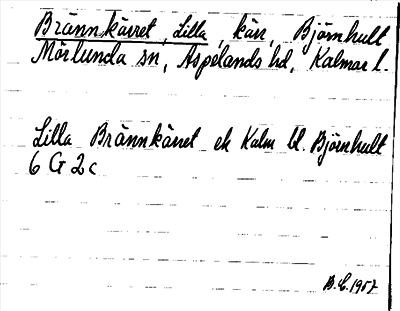 Brännkärret, Lilla, kärr, Björnhult
Mörlunda sn, Aspelands hd, Kalmar l.
Lilla Brännkärret ek Kalm bl. Björnhult
6 G 2 c
B.E. 1957